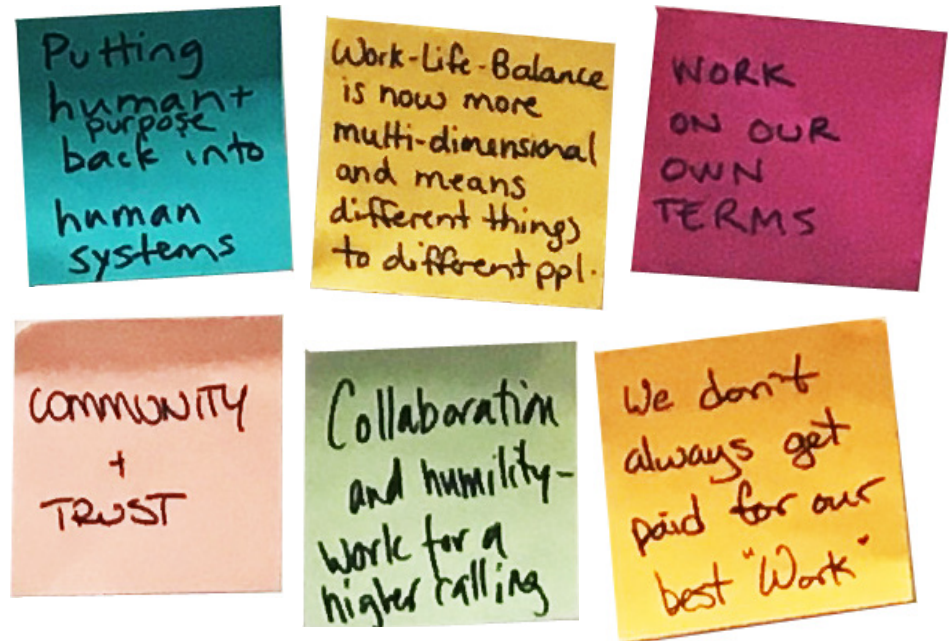 Putting
human +
purpose
back into
human
systems
Work-Life-Balance
is now more
multi-dimensional
and means
different things
to different ppl.
WORK
ON OUR
OWN
TERMS
COMMUNITY
+
TRUST
Collaboration
and humility-
work for a
higher calling
We don't
always get
paid for our
best "Work"